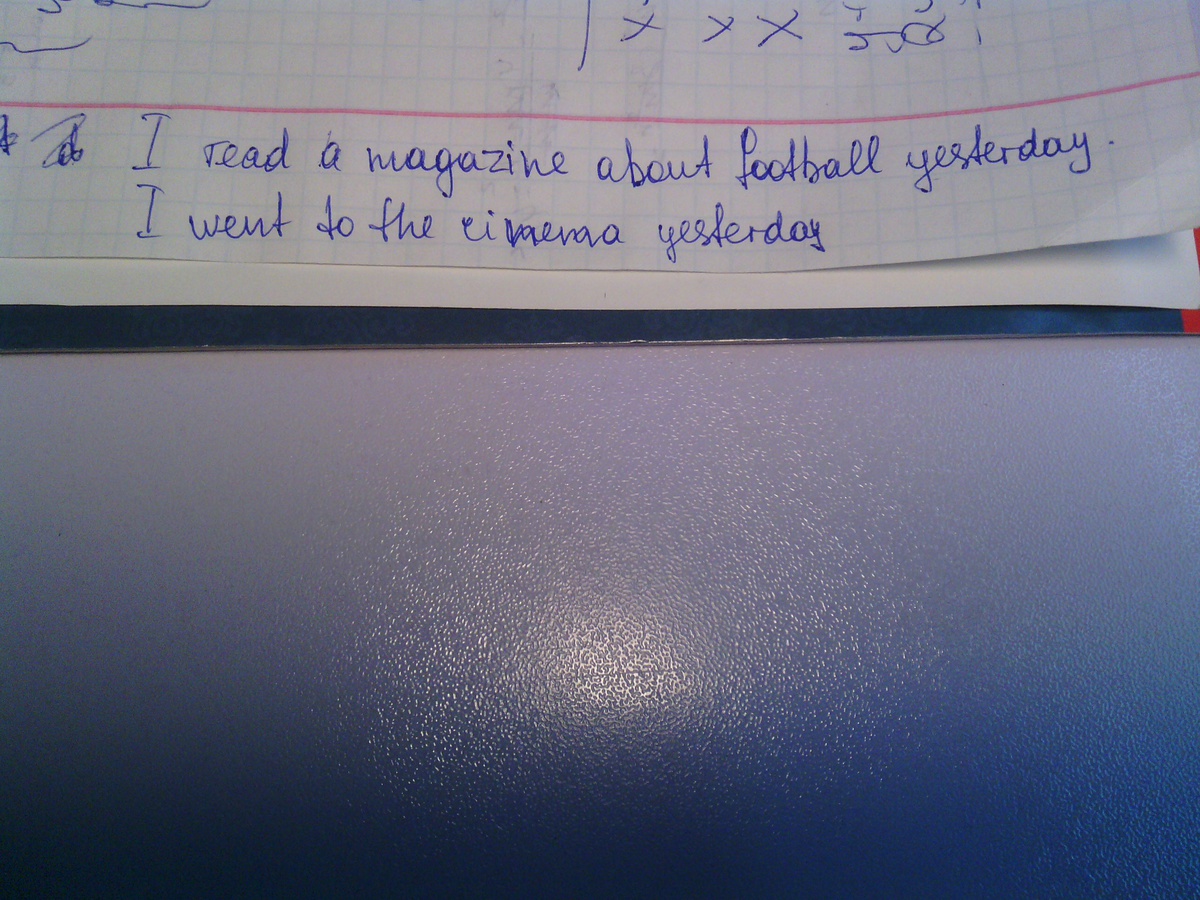 I read a magazine about football yesterday.
I went to the cinema yesterday